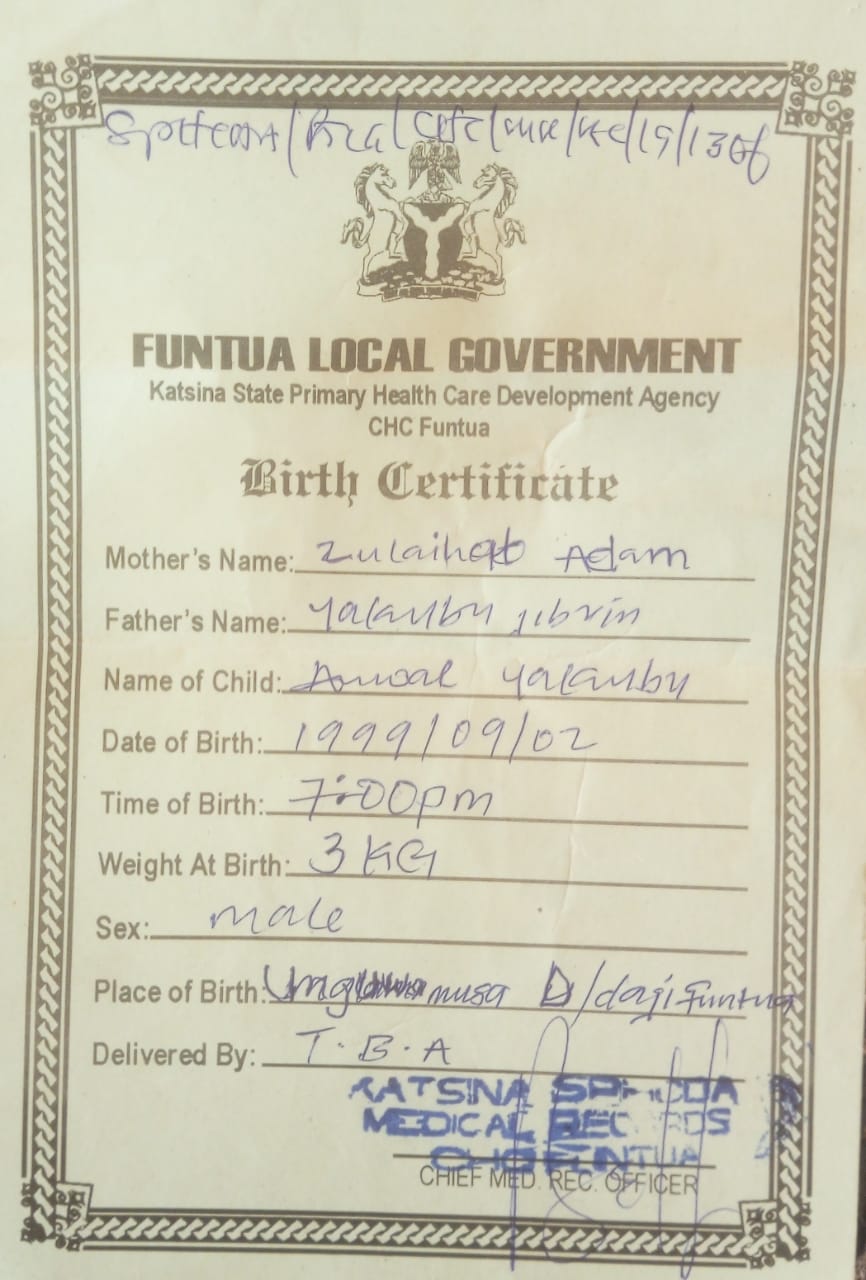 FUNTUA LOCAL GOVERNMENT
Katsina State Primary Health Care Development Agency
CHC Funtua
Birth Certificate
Mother's Name: Zulaihat Adam
Father's Name: Yakubu jibrin
Name of Child: Auwal Yakubu
Date of Birth: 1999/09/02
Time of Birth: 7:00pm
Weight At Birth: 3 KG
Sex: male
Place of Birth: musa D/daji Funtua
Delivered By: T.B.A
KATSINA SPHCDA
MEDICAL RECORDS
CHC FUNTUA
CHIEF MED. REC. OFFICER